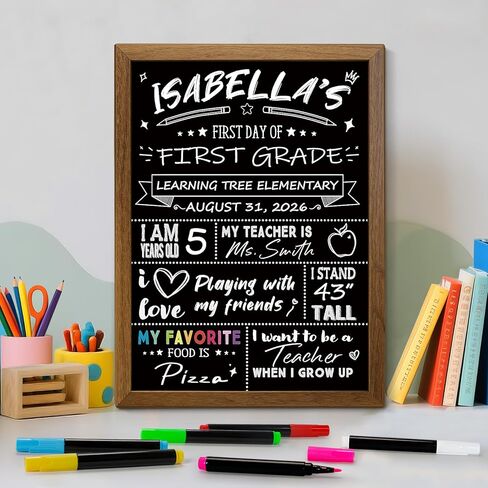 ISABELLA'S
FIRST DAY OF
FIRST GRADE
LEARNING TREE ELEMENTARY
AUGUST 31, 2026
I AM
YEARS OLD
5
MY TEACHER IS
Ms. Smith
i
love
Playing with
my friends
I STAND
43"
TALL
MY FAVORITE
FOOD IS
Pizza
I want to be a
Teacher
WHEN I GROW UP